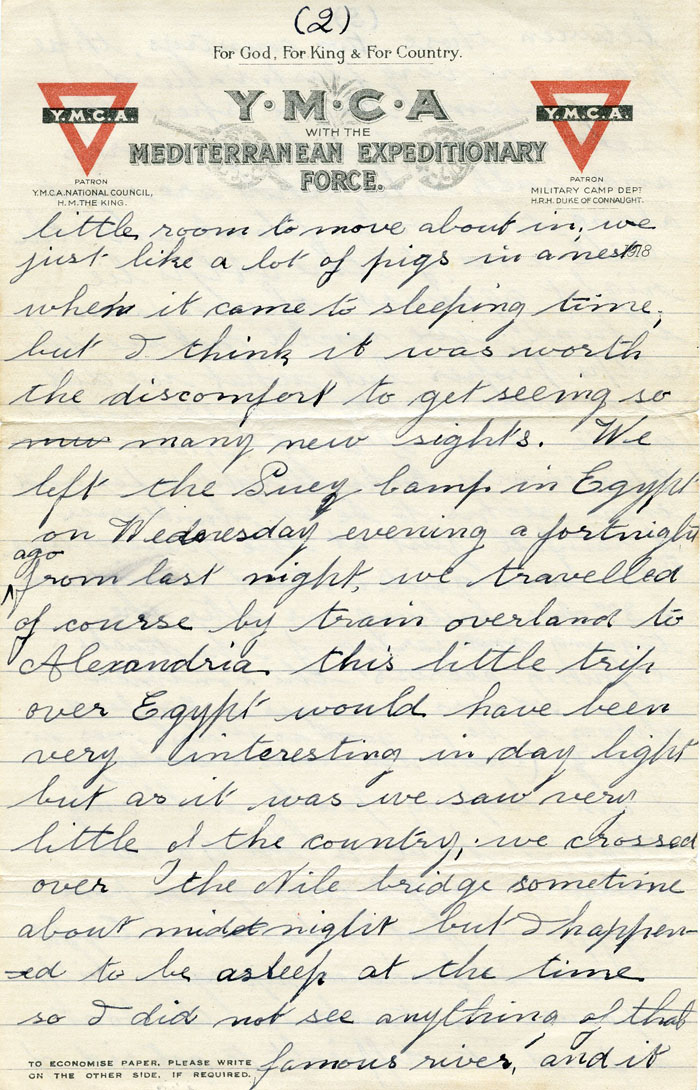 (2)
For God, For King & For Country.
Y·M·C·A
WITH THE
MEDITERRANEAN EXPEDITIONARY
FORCE.
Y.M.C.A.
PATRON
Y.M.C.A. NATIONAL COUNCIL,
H.M. THE KING.
Y.M.C.A.
PATRON
MILITARY CAMP DEPT
H.R.H. DUKE OF CONNAUGHT.
little room to move about in, we
just like a lot of pigs in a nest 1918
when it came to sleeping time,
but I think it was worth
the discomfort to get seeing so
many new sights. We
left the Suez Camp in Egypt
on Wednesday evening a fortnight
ago
from last night, we travelled
of course by train overland to
Alexandria this little trip
over Egypt would have been
very interesting in day light
but as it was we saw very
little of the country, we crossed
over the Nile bridge sometime
about midnight but I happen-
ed to be asleep at the time
so I did not see anything of that
famous river, and it
TO ECONOMISE PAPER, PLEASE WRITE
ON THE OTHER SIDE, IF REQUIRED.